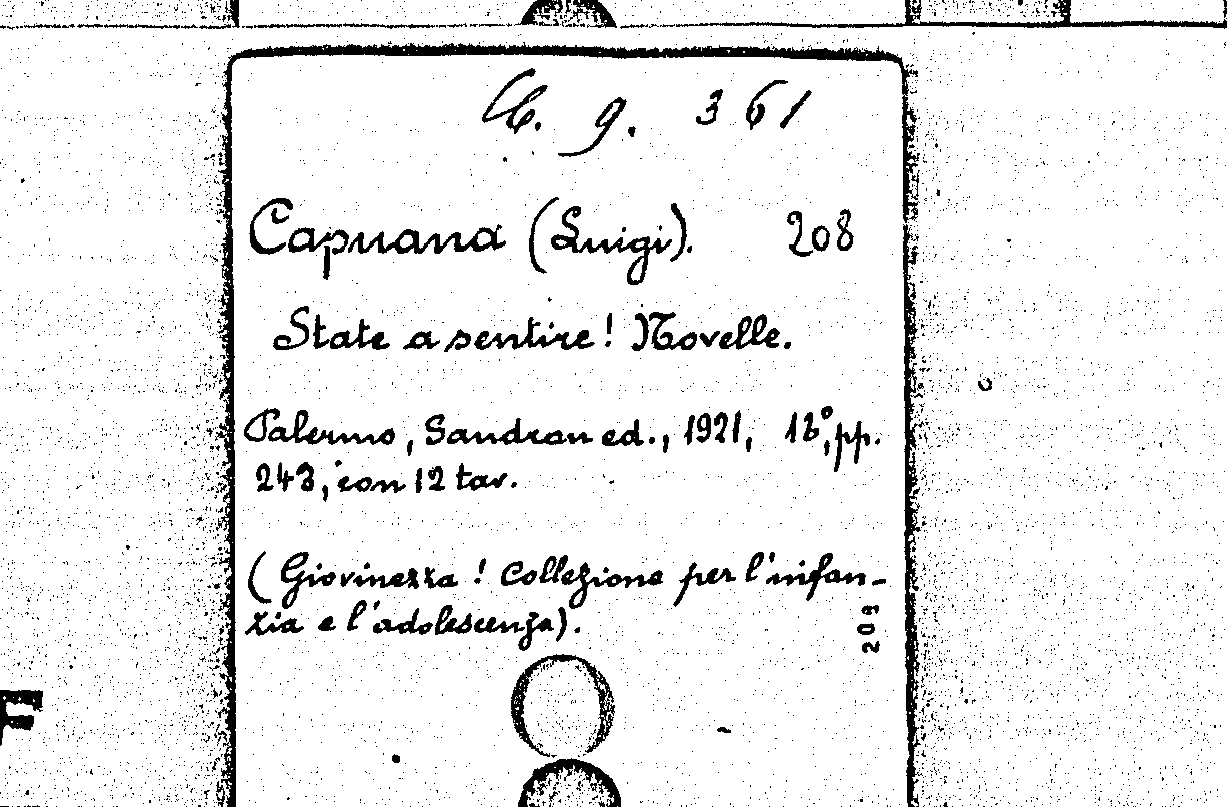 9. 361
Capuana (Luigi). 208
State a sentire! Novelle.
Palermo, Sandron ed., 1921, 16°, pp.
243, con 12 tav.
(Giovinezza! Collezione per l'infan-
zia e l'adolescenza).
209
F